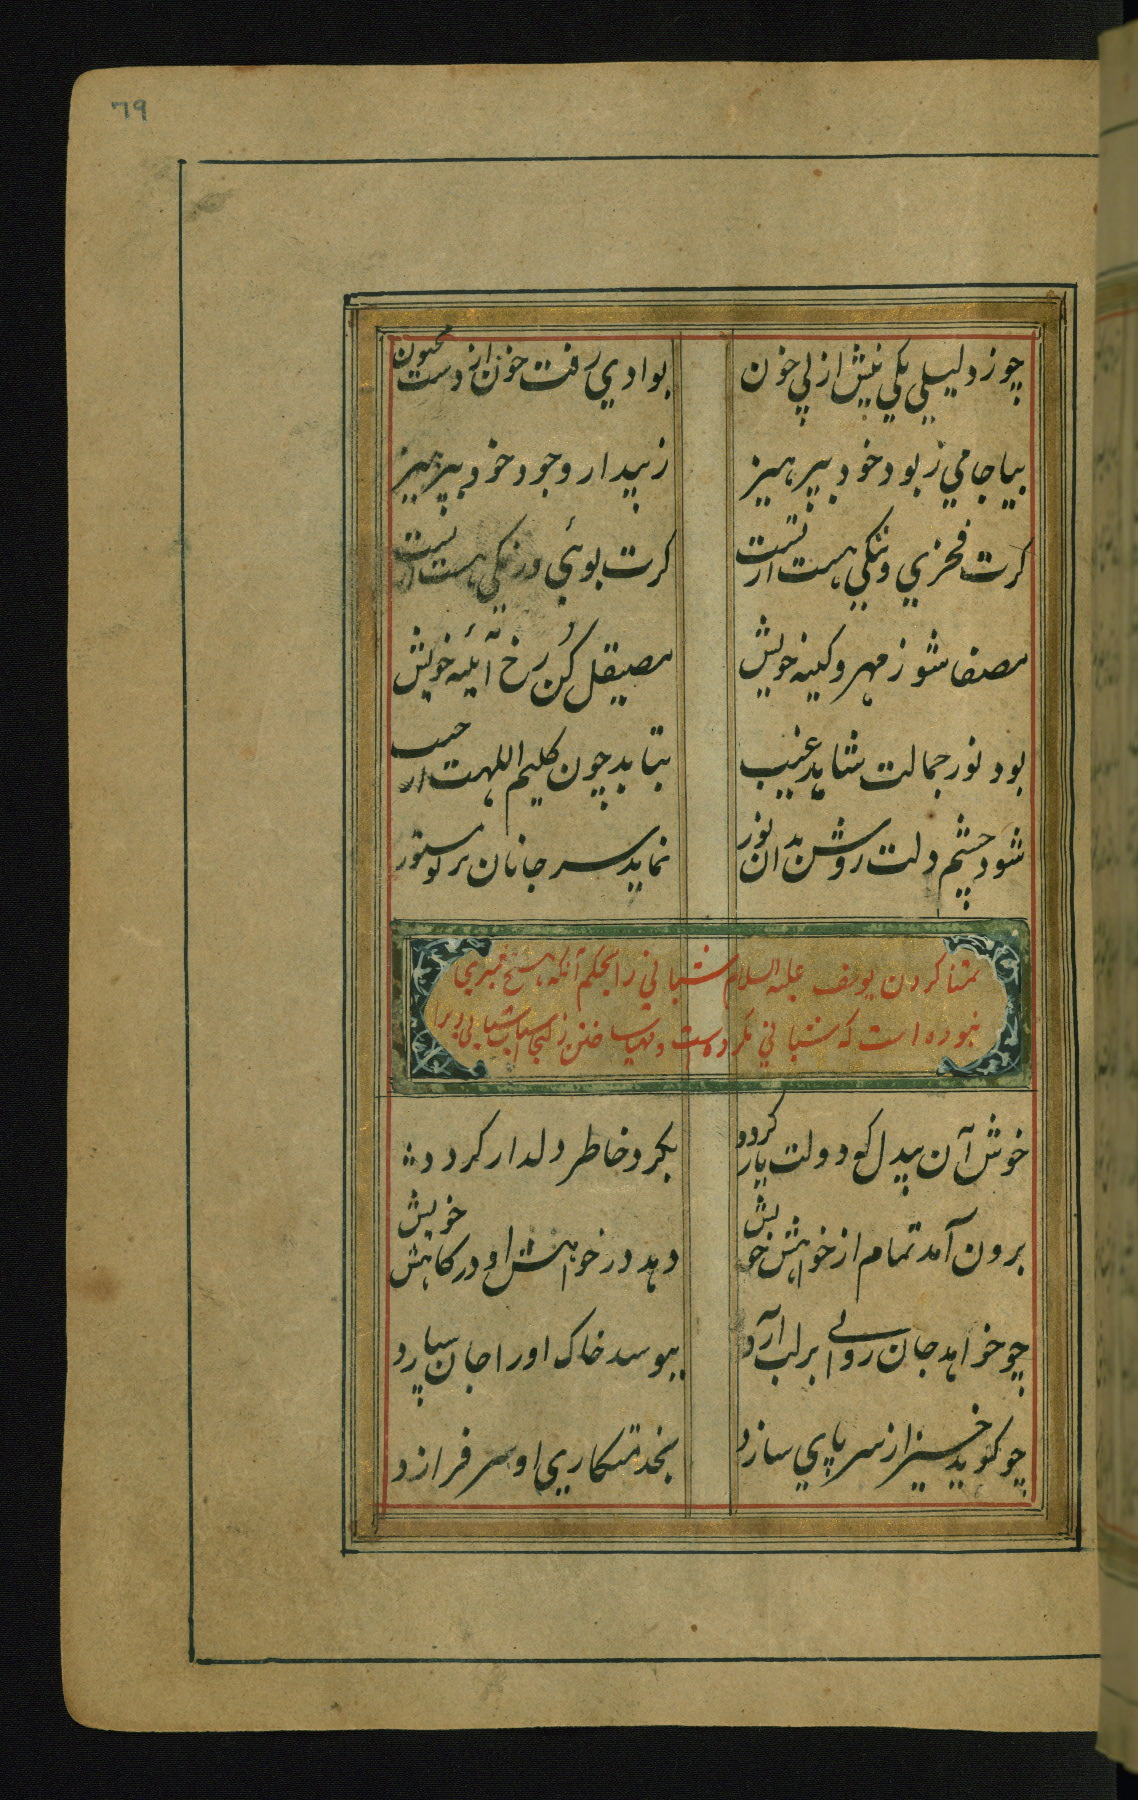 ٦٩
چو زد لیلی یکی نیش از پی خون
بوادی رفت خون از دست مجنون
بیا جامی ز بود خود بپرهیز
ز پیدار وجود خود بپرهیز
کرت فخری و ننکی هست ازتست
کرت بوئی و رنکی هست از تست
مصفا شو ز مهر و کینه خویش
مصیقل کن رخ آئینه خویش
بود نور جمالت شاهد غیب
بتابد چون کلیم اللهت از جیب
شود چشم دلت روشن بدان نور
نماید سر جانان بر تو مستور
تمنا کردن یوسف علیه السلام شبانی را بحکم آنکه هیچ پیغمبری
نبوده است که شبانی نکرده است و مهیا ساختن زلیخا اسباب شبانی ویرا
خوش آن بیدل کو دولت یار کردد
بکرد خاطر دلدار کردد
برون آمد تمام از خواهش خویش
دهد در خواهش او در کاهش خویش
چو خواهد جان روانی بر لب آرد
ببوسد خاک او را جان سپارد
چو کوید خیز از سر پای سازد
بخدمتکاری او سر فرازد